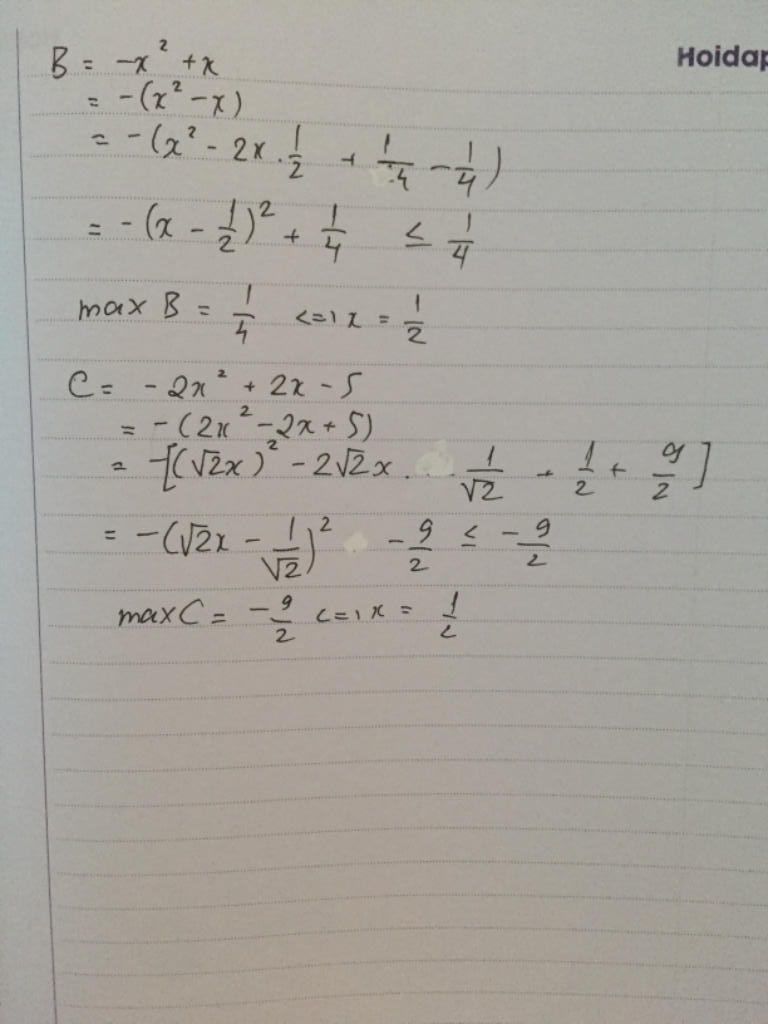 Hoidap
B = -x² + x
= -(x² - x)
= -(x² - 2x . 1/2 + 1/4 - 1/4)
= -(x - 1/2)² + 1/4 ≤ 1/4
max B = 1/4 <=> x = 1/2
C = -2x² + 2x - 5
= -(2x² - 2x + 5)
= -[(√2x)² - 2√2x . 1/√2 + 1/2 + 9/2]
= -(√2x - 1/√2)² - 9/2 ≤ -9/2
max C = -9/2 <=> x = 1/2